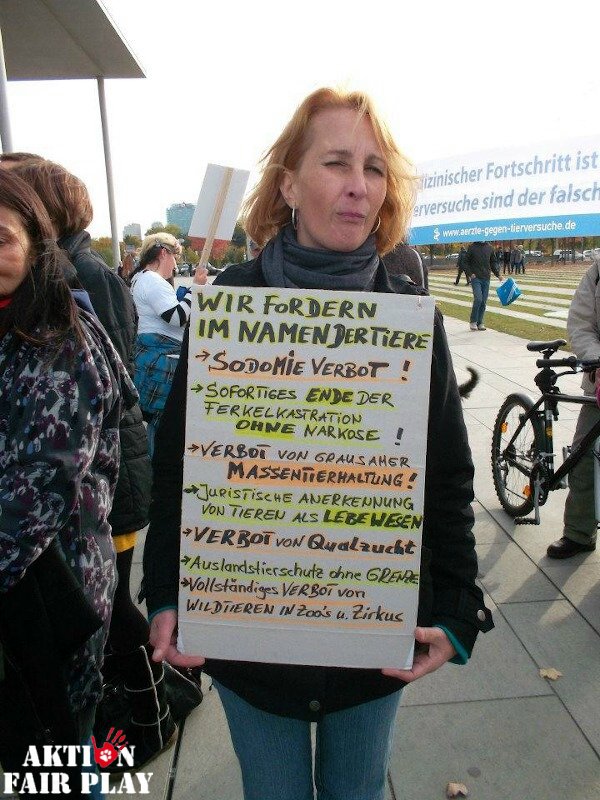 WIR FORDERN
IM NAMEN DER TIERE
→ SODOMIE VERBOT !
→ SOFORTIGES ENDE DER
FERKELKASTRATION
OHNE NARKOSE !
→ VERBOT VON GRAUSAMER
MASSENTIERHALTUNG!
→ JURISTISCHE ANERKENNUNG
VON TIEREN ALS LEBEWESEN
→ VERBOT VON Qualzucht
→ Auslandstierschutz ohne GRENZE
→ Vollständiges VERBOT von
WILDTIEREN IN Zoo's u. Zirkus
dizinischer Fortschritt ist
erversuche sind der falsch
www.aerzte-gegen-tierversuche.de
AKTION
FAIR PLAY